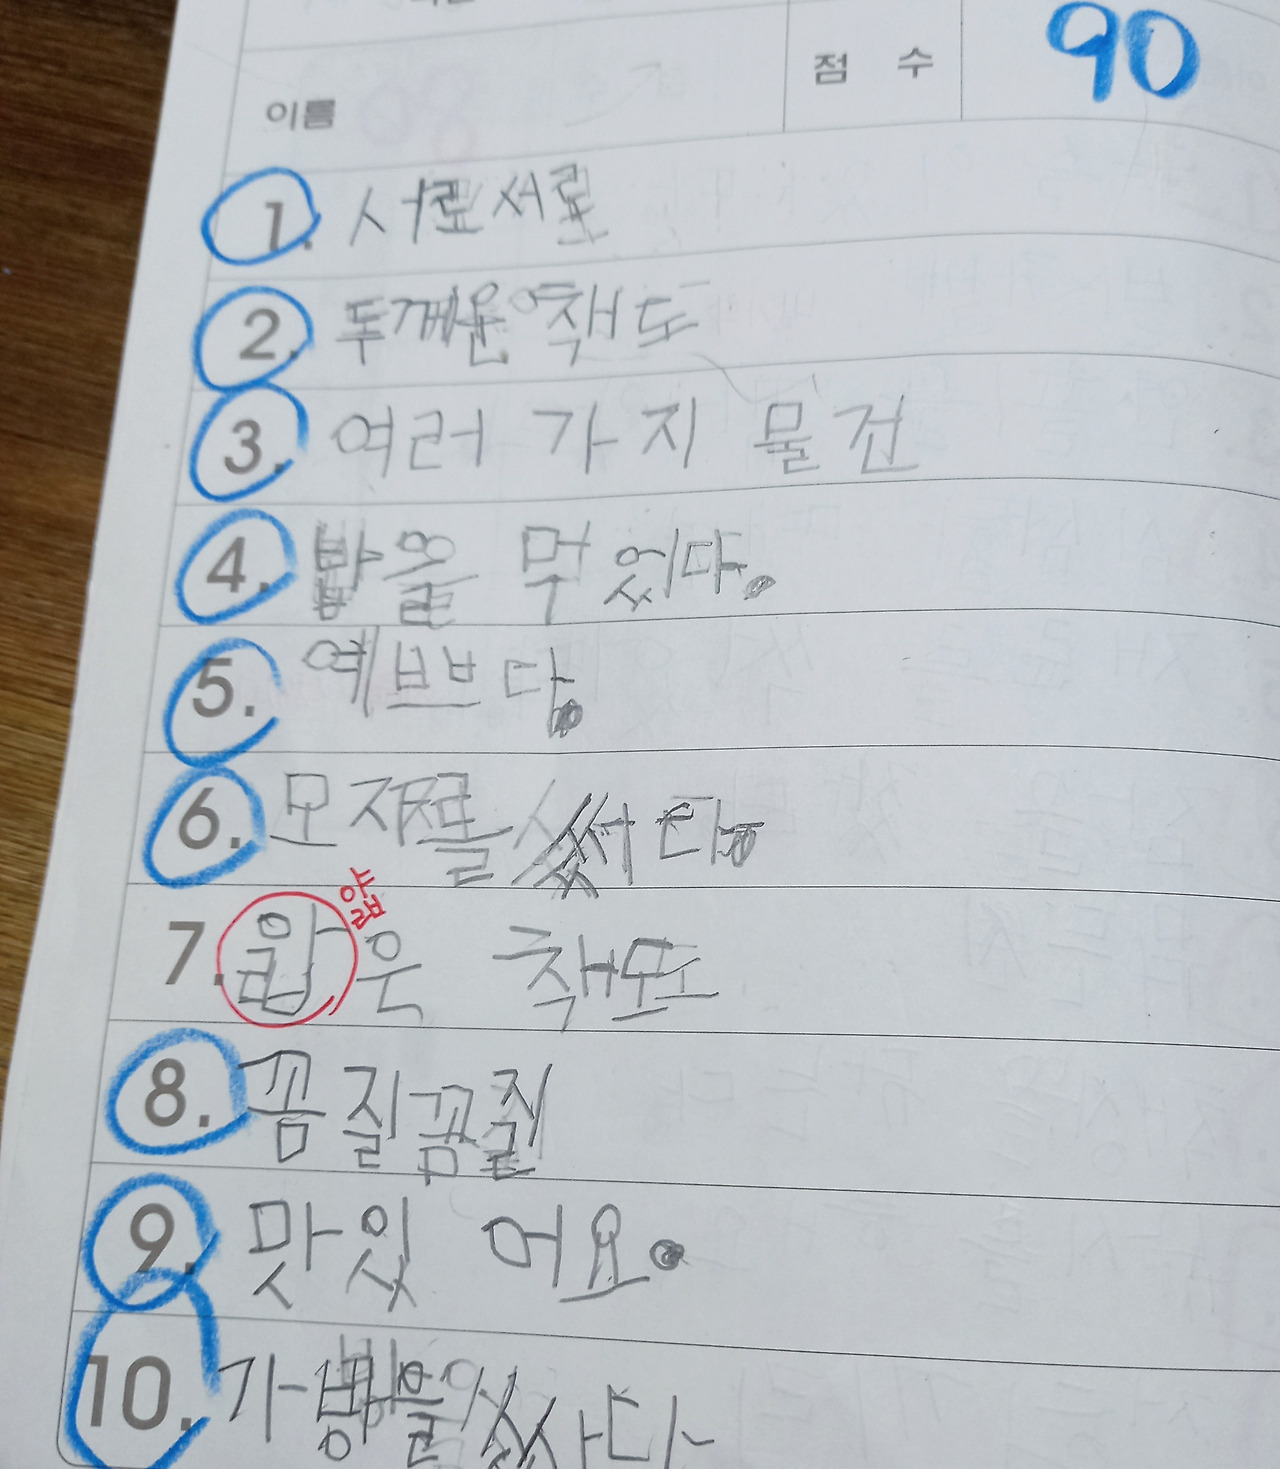 이름 점 수 90
1. 서로서로
2. 두꺼운 책도
3. 여러 가지 물건
4. 밥을 먹었다.
5. 예쁘다.
6. 모자를 쓰다.
얇
7. 은 책도
8. 꼼질꼼질
9. 맛있 어요.
10. 가방을 쌌다